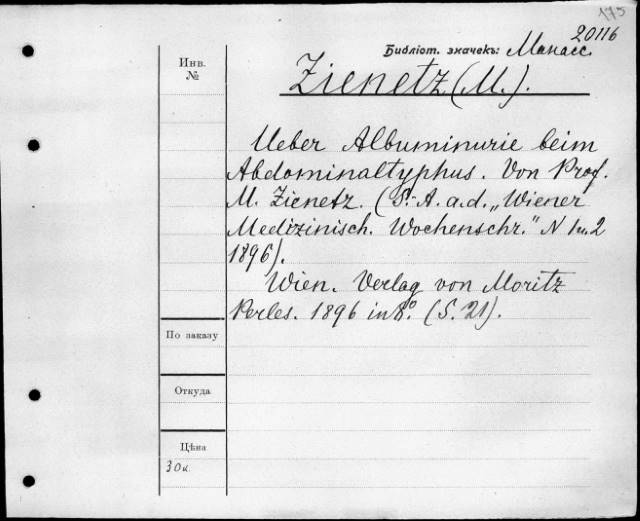 175
20116
Библіот. значекъ: Манасс.
Инв.
№
Zienetz (M.).
Ueber Albuminurie beim
Abdominaltyphus. Von Prof.
M. Zienetz. (S.-A. a. d. „Wiener
Medizinisch. Wochenschr." N 1 u. 2
1896).
Wien. Verlag von Moritz
Perles. 1896 in 8°. (S. 21).
По заказу
Откуда
Цѣна
30 к.